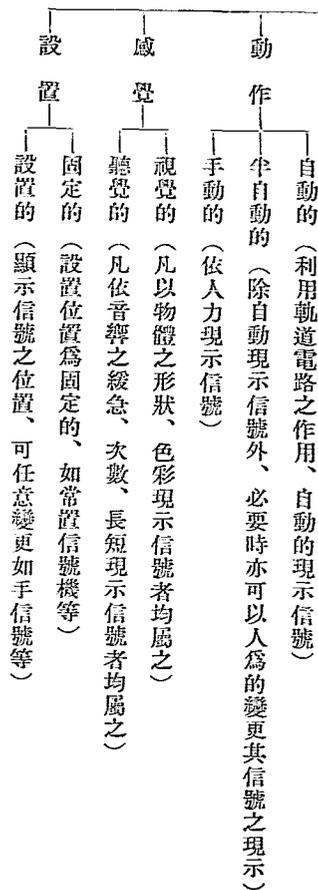 動作
自動的（利用軌道電路之作用、自動的現示信號）
半自動的（除自動現示信號外、必要時亦可以人爲的變更其信號之現示）
手動的（依人力現示信號）
感覺
視覺的（凡以物體之形狀、色彩現示信號者均屬之）
聽覺的（凡依音響之緩急、次數、長短現示信號者均屬之）
設置
固定的（設置位置爲固定的、如常置信號機等）
設置的（顯示信號之位置、可任意變更如手信號等）